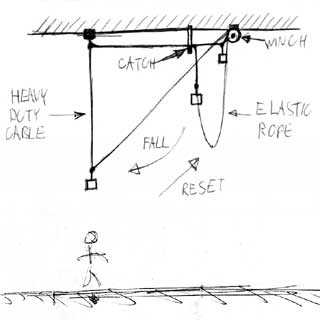 WINCH
CATCH
HEAVY
DUTY
CABLE
ELASTIC
ROPE
FALL
RESET